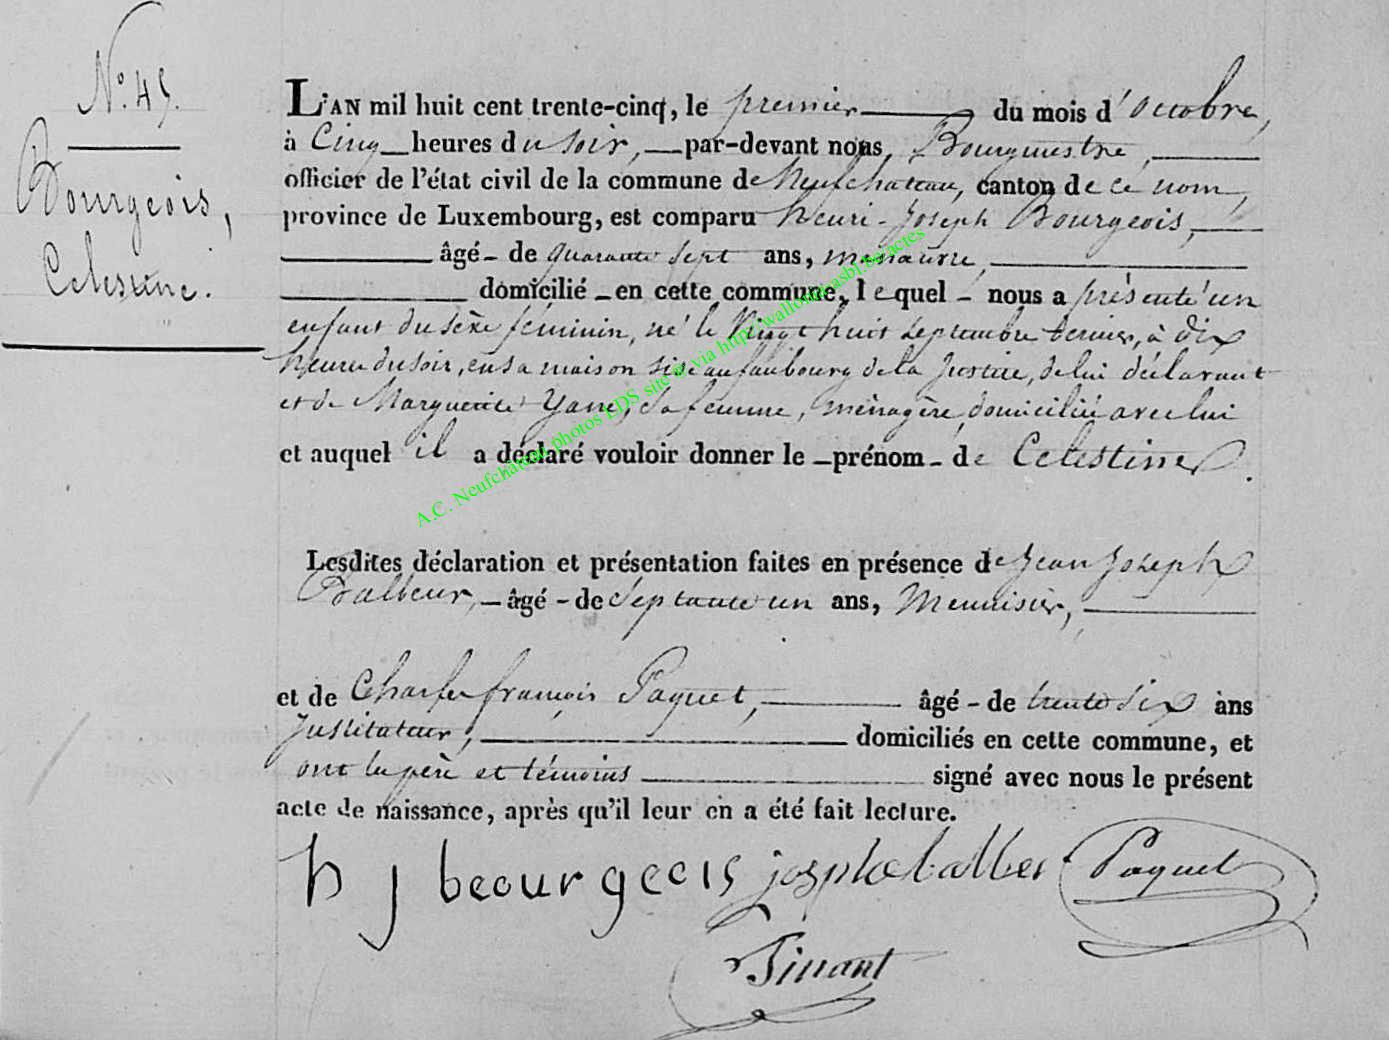 N° 45.
Bourgeois,
Celestine.
L'AN mil huit cent trente-cinq, le premier du mois d'octobre,
à Cinq heures du soir, par-devant nous, Bourgmestre,
officier de l'état civil de la commune de Neufchateau, canton de ce nom,
province de Luxembourg, est comparu henri-Joseph Bourgeois,
âgé de quarante sept ans, manœuvre,
domicilié en cette commune, lequel nous a présenté un
enfant du sèxe féminin, né le Vingt huit septembre dernier, à dix
heures du soir, en sa maison sise au faubourg de la Justice, de lui déclarant
et de Marguerite sa femme, ménagère, domiciliée avec lui
et auquel il a déclaré vouloir donner le prénom de Celestine.
A.C. Neufchâteau photos EDS site via http://wallonia-asbl.be/actes
Lesdites déclaration et présentation faites en présence de Jean Joseph
âgé de septante un ans, Menuisier,
et de Charles françois Paquet, âgé de trente six ans
Instituteur, domiciliés en cette commune, et
ont le père et témoins signé avec nous le présent
acte de naissance, après qu'il leur en a été fait lecture.
h j beourgeois Paquet